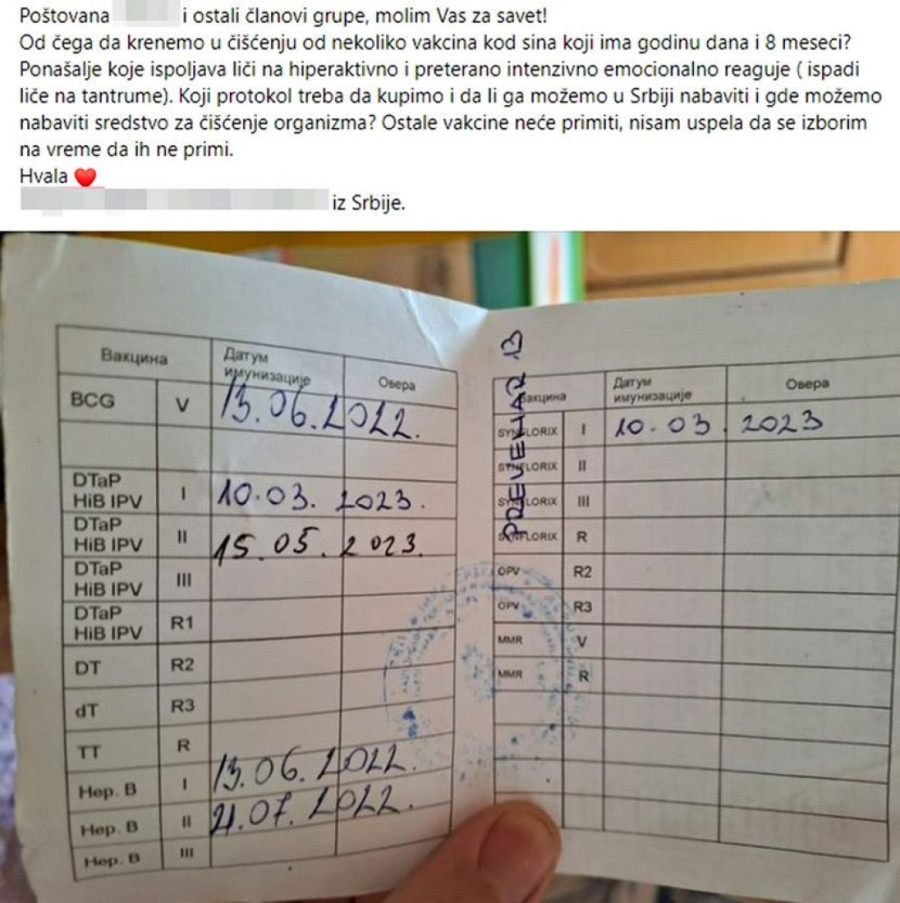 Poštovana i ostali članovi grupe, molim Vas za savet!
Od čega da krenemo u čišćenju od nekoliko vakcina kod sina koji ima godinu dana i 8 meseci?
Ponašalje koje ispoljava liči na hiperaktivno i preterano intenzivno emocionalno reaguje ( ispadi
liče na tantrume). Koji protokol treba da kupimo i da li ga možemo u Srbiji nabaviti i gde možemo
nabaviti sredstvo za čišćenje organizma? Ostale vakcine neće primiti, nisam uspela da se izborim
na vreme da ih ne primi.
Hvala ❤️
iz Srbije.
Вакцина Датум имунизације Овера
BCG V 13.06.2022.
DTaP
HiB IPV I 10.03.2023.
DTaP
HiB IPV II 15.05.2023.
DTaP
HiB IPV III
DTaP
HiB IPV R1
DT R2
dT R3
TT R
Hep. B I 13.06.2022.
Hep. B II 21.07.2022.
Hep. B III
PREVEHAR 13
Вакцина Датум имунизације Овера
SYNFLORIX I 10.03.2023
SYNFLORIX II
SYNFLORIX III
SYNFLORIX R
OPV R2
OPV R3
MMR V
MMR R